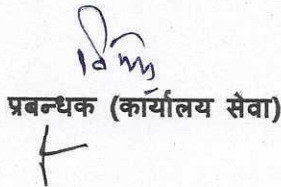 प्रबन्धक (कार्यालय सेवा)